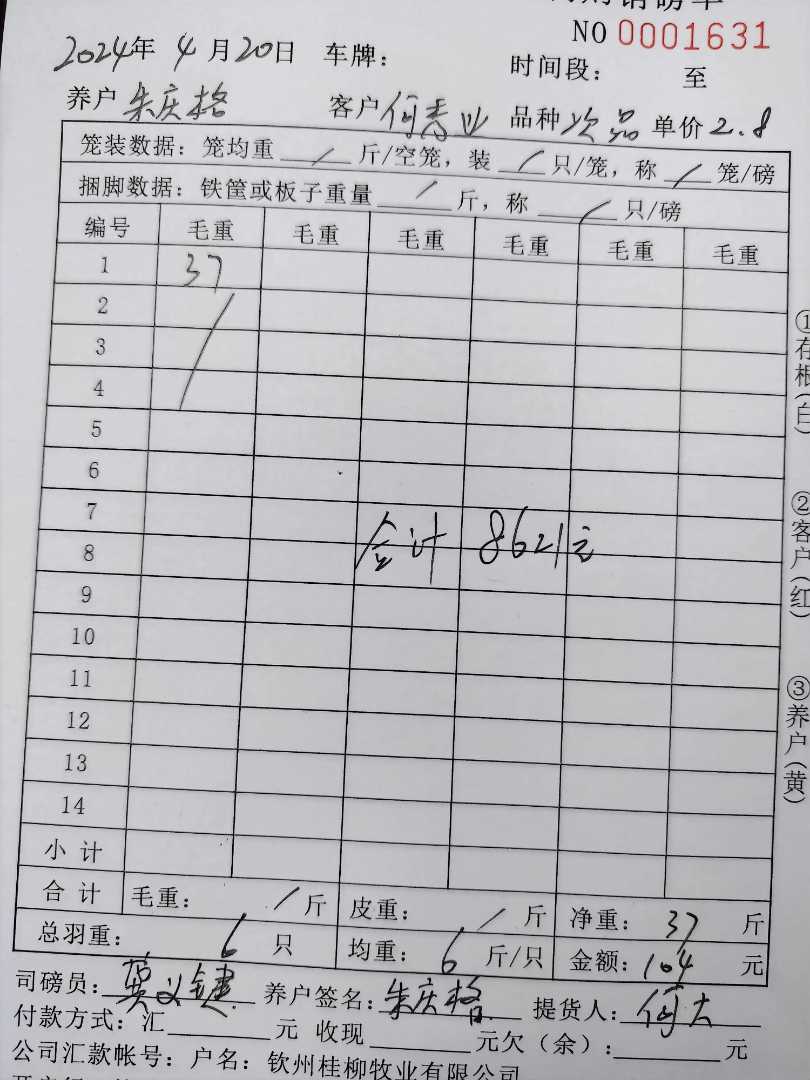 NO 0001631
2024年 4月20日 车牌： 时间段： 至
养户 朱庆格 客户 何秀业 品种 次品 单价 2.8
笼装数据：笼均重 / 斤/空笼，装 / 只/笼，称 / 笼/磅
捆脚数据：铁筐或板子重量 / 斤，称 / 只/磅
编号 毛重 毛重 毛重 毛重 毛重 毛重
1 37
2
3
4
5
6
7
合计 8621元
8
9
10
11
12
13
14
小计
合计 毛重： / 斤 皮重： / 斤 净重： 37 斤
总羽重： 6 只 均重： 6 斤/只 金额：104 元
司磅员： 养户签名：朱庆格 提货人：何大
付款方式：汇 元 收现 元欠（余）： 元
公司汇款帐号：户名：钦州桂柳牧业有限公司
①存根(白)
②客户(红)
③养户(黄)